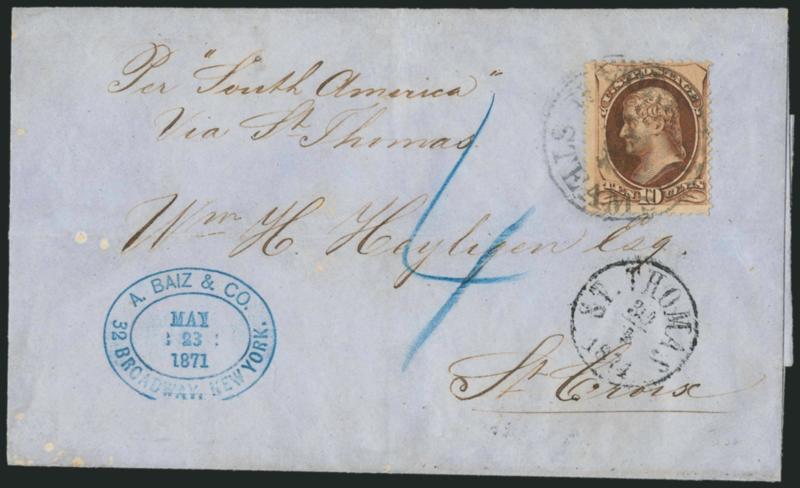 Per "South America"
Via St Thomas.
U.S. POSTAGE
TEN 10 CENTS
Wm H. Heyligen Esq.
4
A. BAIZ & CO.
MAY
23
1871
32 BROADWAY, NEW YORK.
ST. THOMAS
St Croix